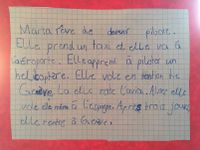 Maria rêve de devenir pilote.
Elle prend un taxi et elle va à
l'aéroporte. Elle apprend à piloter un
hélicoptère. Elle vole en
Genève. La elle rate l'avia. Alors elle
vole à l'espagne. Après trois jours
elle rentre à Genève.